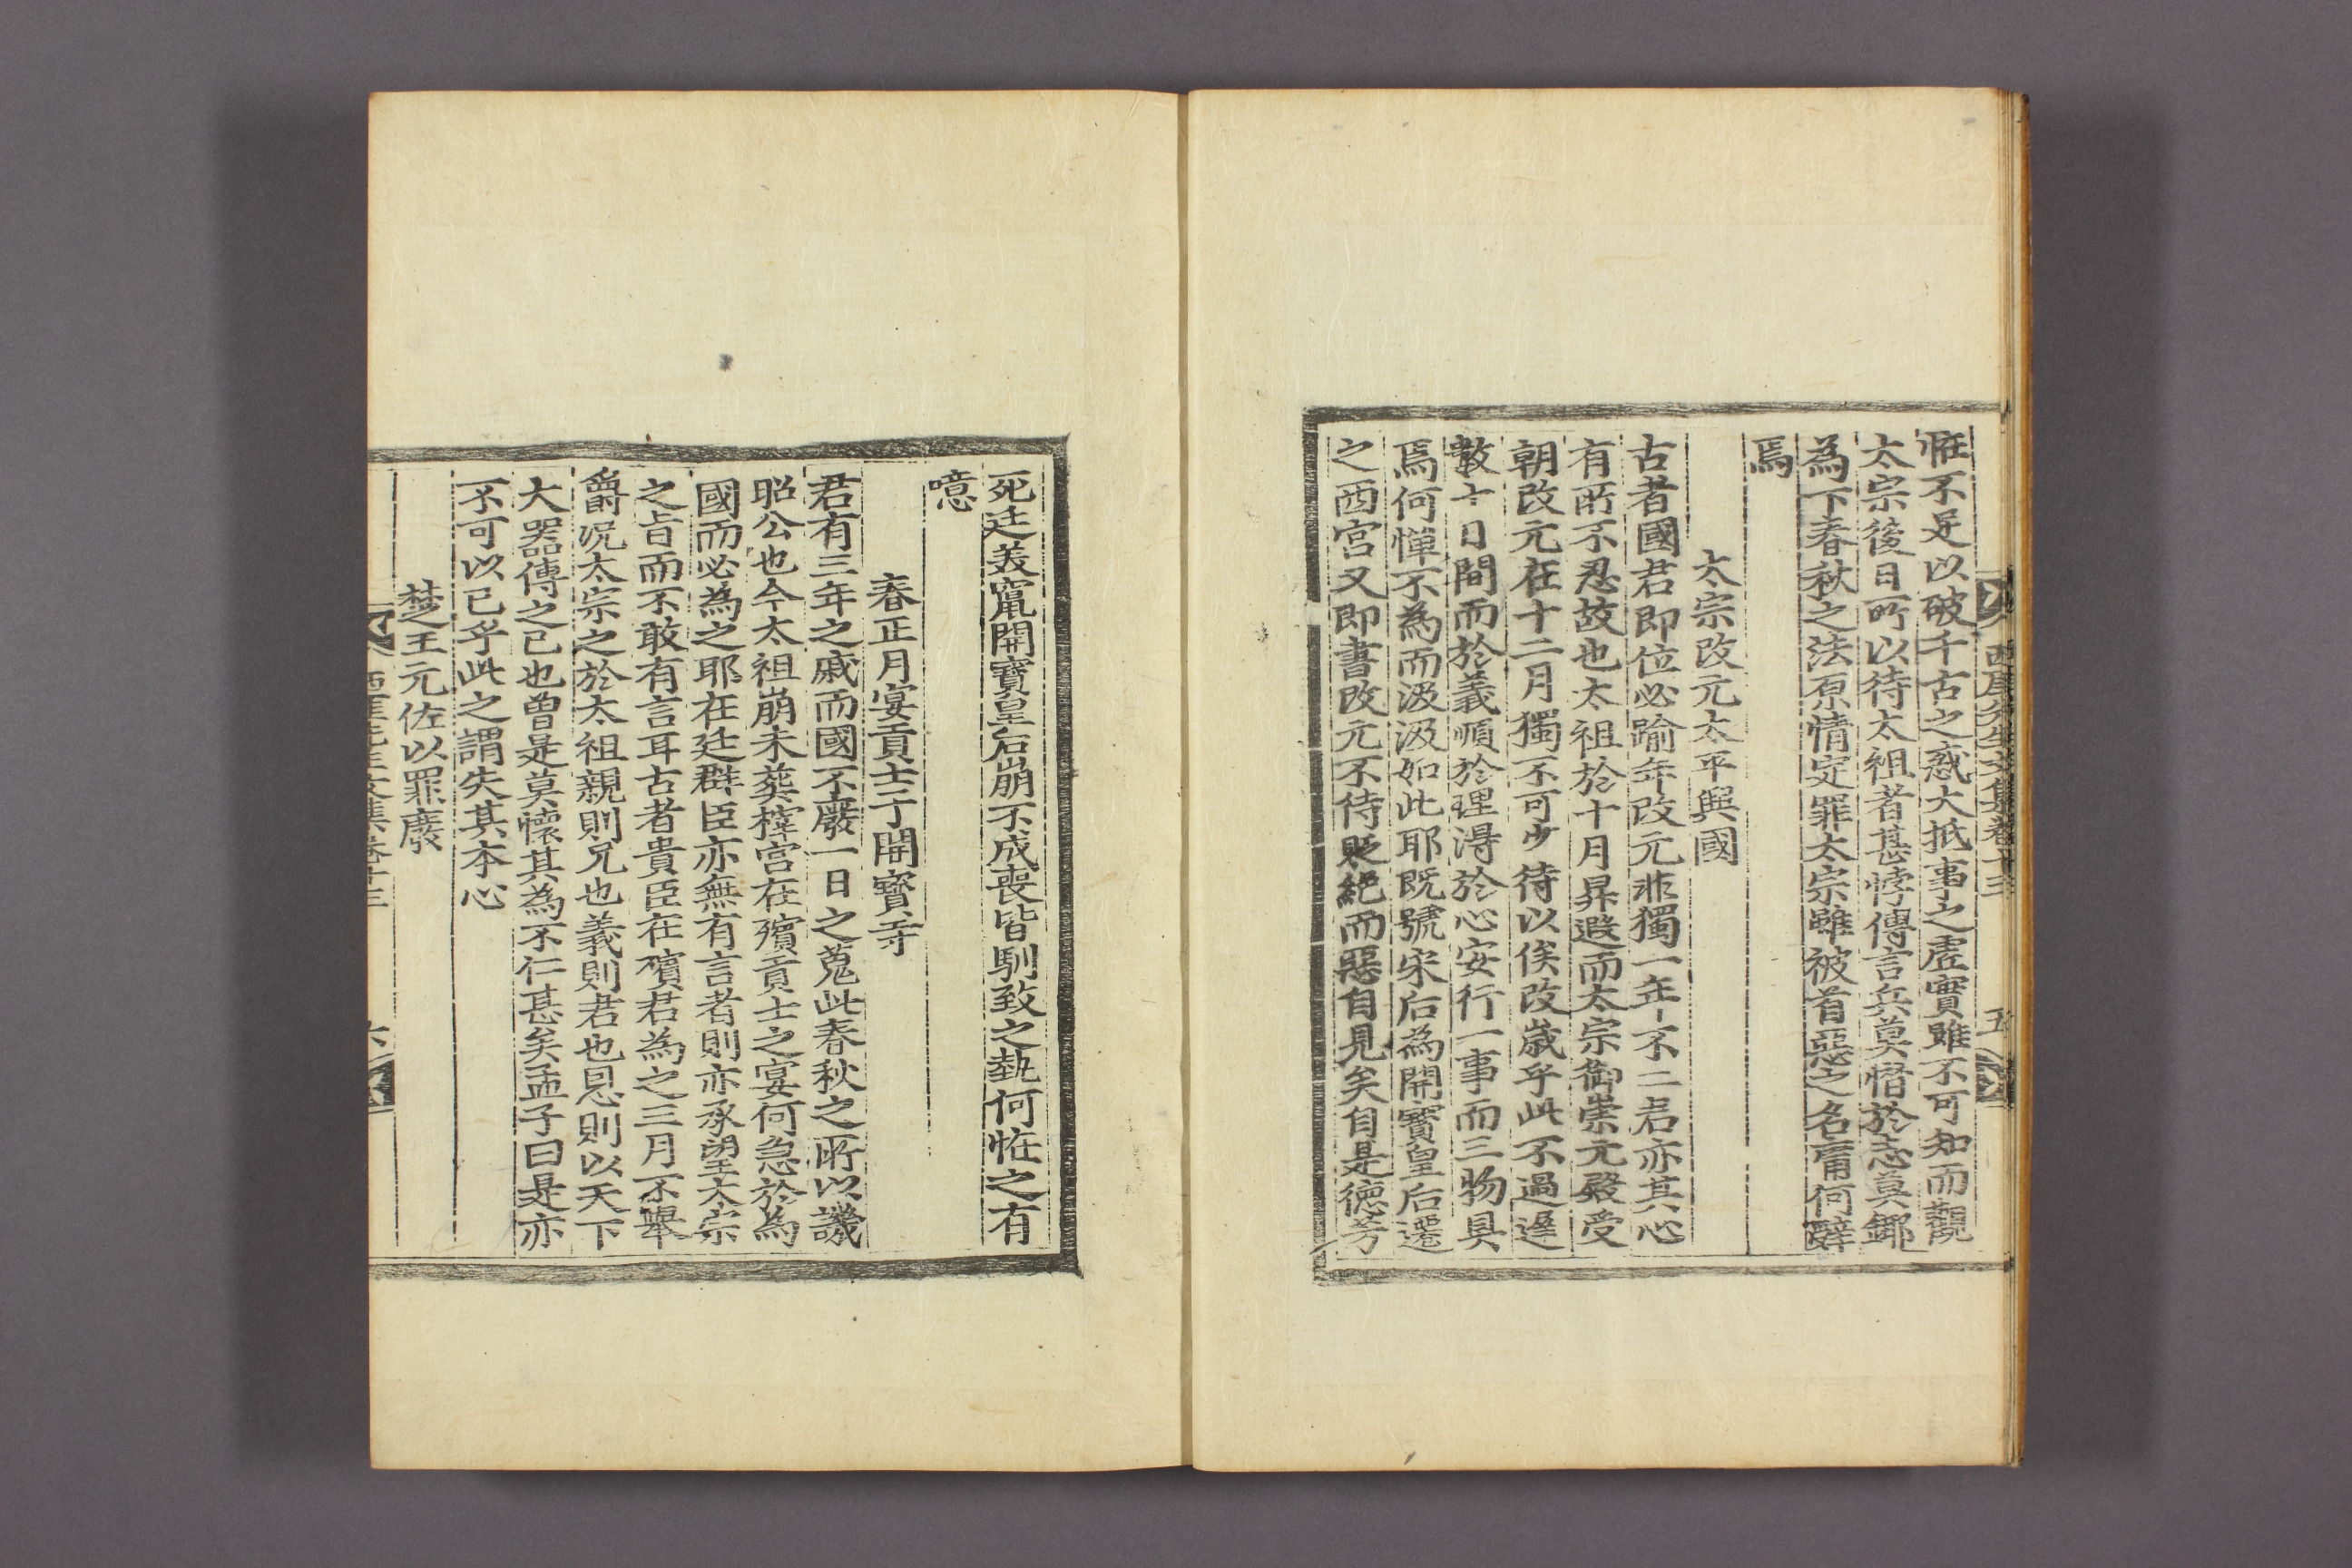 西厓先生文集卷十三 五
恠不足以破千古之惑大抵事之虛實雖不可知而觀
太宗後日所以待太祖者甚悖傳言兵莫憯於志莫鎁
為下春秋之法原情定罪太宗雖被首惡之名庸何辭
焉
太宗改元太平興國
古者國君即位必踰年改元非獨一年不二君亦其心
有所不忍故也太祖於十月昇遐而太宗御崇元殿受
朝改元在十二月獨不可少待以俟改歲乎此不過遲
數十日間而於義順於理得於心安行一事而三物具
焉何憚不為而汲汲如此耶既號宋后為開寶皇后遷
之西宮又即書改元不待貶絕而惡自見矣自是德芳
死廷美竄開寶皇后崩不成喪皆馴致之埶何恠之有
噫
春正月宴貢士于開寶寺
君有三年之慼而國不廢一日之蒐此春秋之所以譏
昭公也今太祖崩未葬梓宮在殯貢士之宴何急於為
國而必為之耶在廷群臣亦無有言者則亦承望太宗
之旨而不敢有言耳古者貴臣在殯君為之三月不舉
爵况太宗之於太祖親則兄也義則君也恩則以天下
大器傳之己也曾是莫懷其為不仁甚矣孟子曰是亦
不可以已乎此之謂失其本心
楚王元佐以罪廢
西厓先生文集卷十三 六